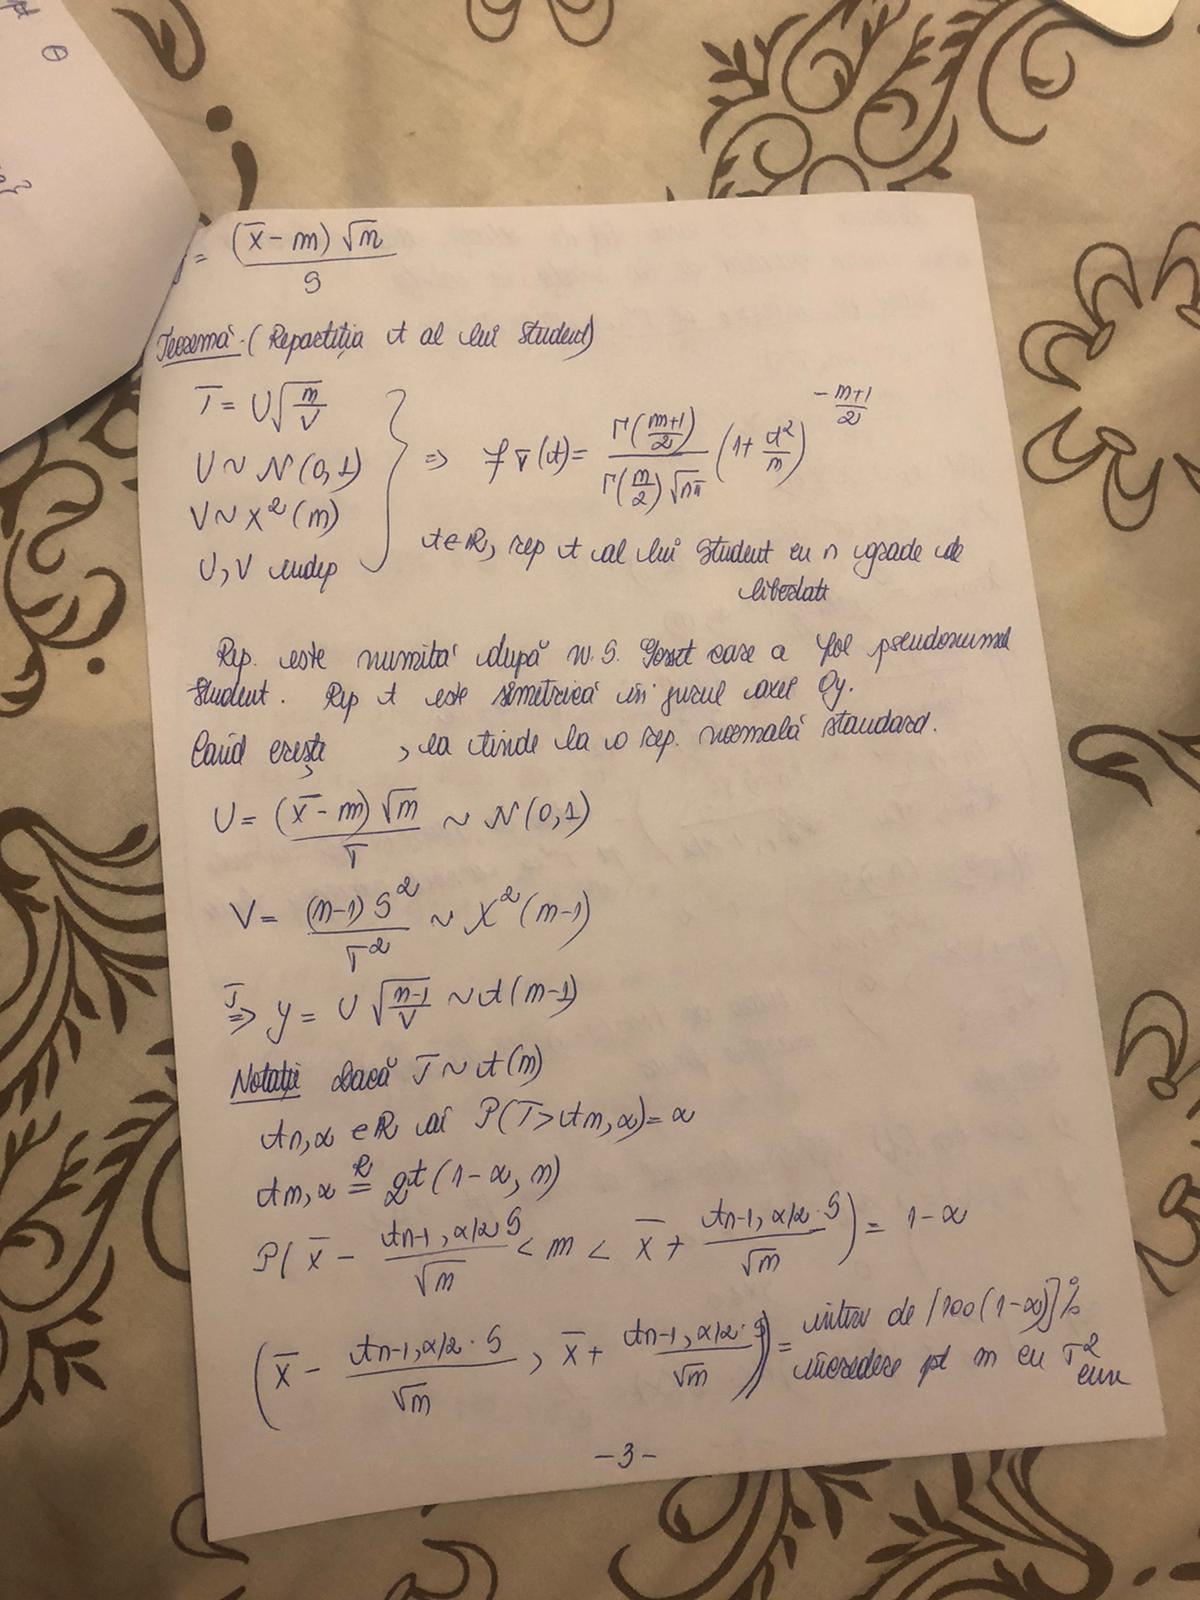 pt θ
y = (x̄ - m) √n / S
Teoremă - (Repartiția t al lui Student)
T = U √(n/V)
U ~ N(0,1)
V ~ χ²(n)
U, V indep
=> f_T(t) = Γ((n+1)/2) / (Γ(n/2) √(nπ)) (1 + t²/n)^(-(n+1)/2)
t ∈ ℝ, rep t al lui Student cu n grade de
libertate
Rep. este numită după W. S. Gosset care a fol pseudonumul
Student. Rep t este simetrică în jurul axei Oy.
Când crește , ea tinde la o rep. normală standard.
U = (x̄ - m) √n / σ ~ N(0,1)
V = (n-1) S² / σ² ~ χ²(n-1)
T => y = U √((n-1)/V) ~ t(n-1)
Notație Dacă T ~ t(n)
t n,α ∈ ℝ aî P(T > t n,α) = α
t n,α =^R qt(1-α, n)
P( x̄ - (t n-1, α/2 S)/√n < m < x̄ + (t n-1, α/2 · S)/√n ) = 1-α
( x̄ - (t n-1, α/2 · S)/√n , x̄ + (t n-1, α/2 · S)/√n ) = interv de [100(1-α)]%
încredere pt m cu σ²
-3-